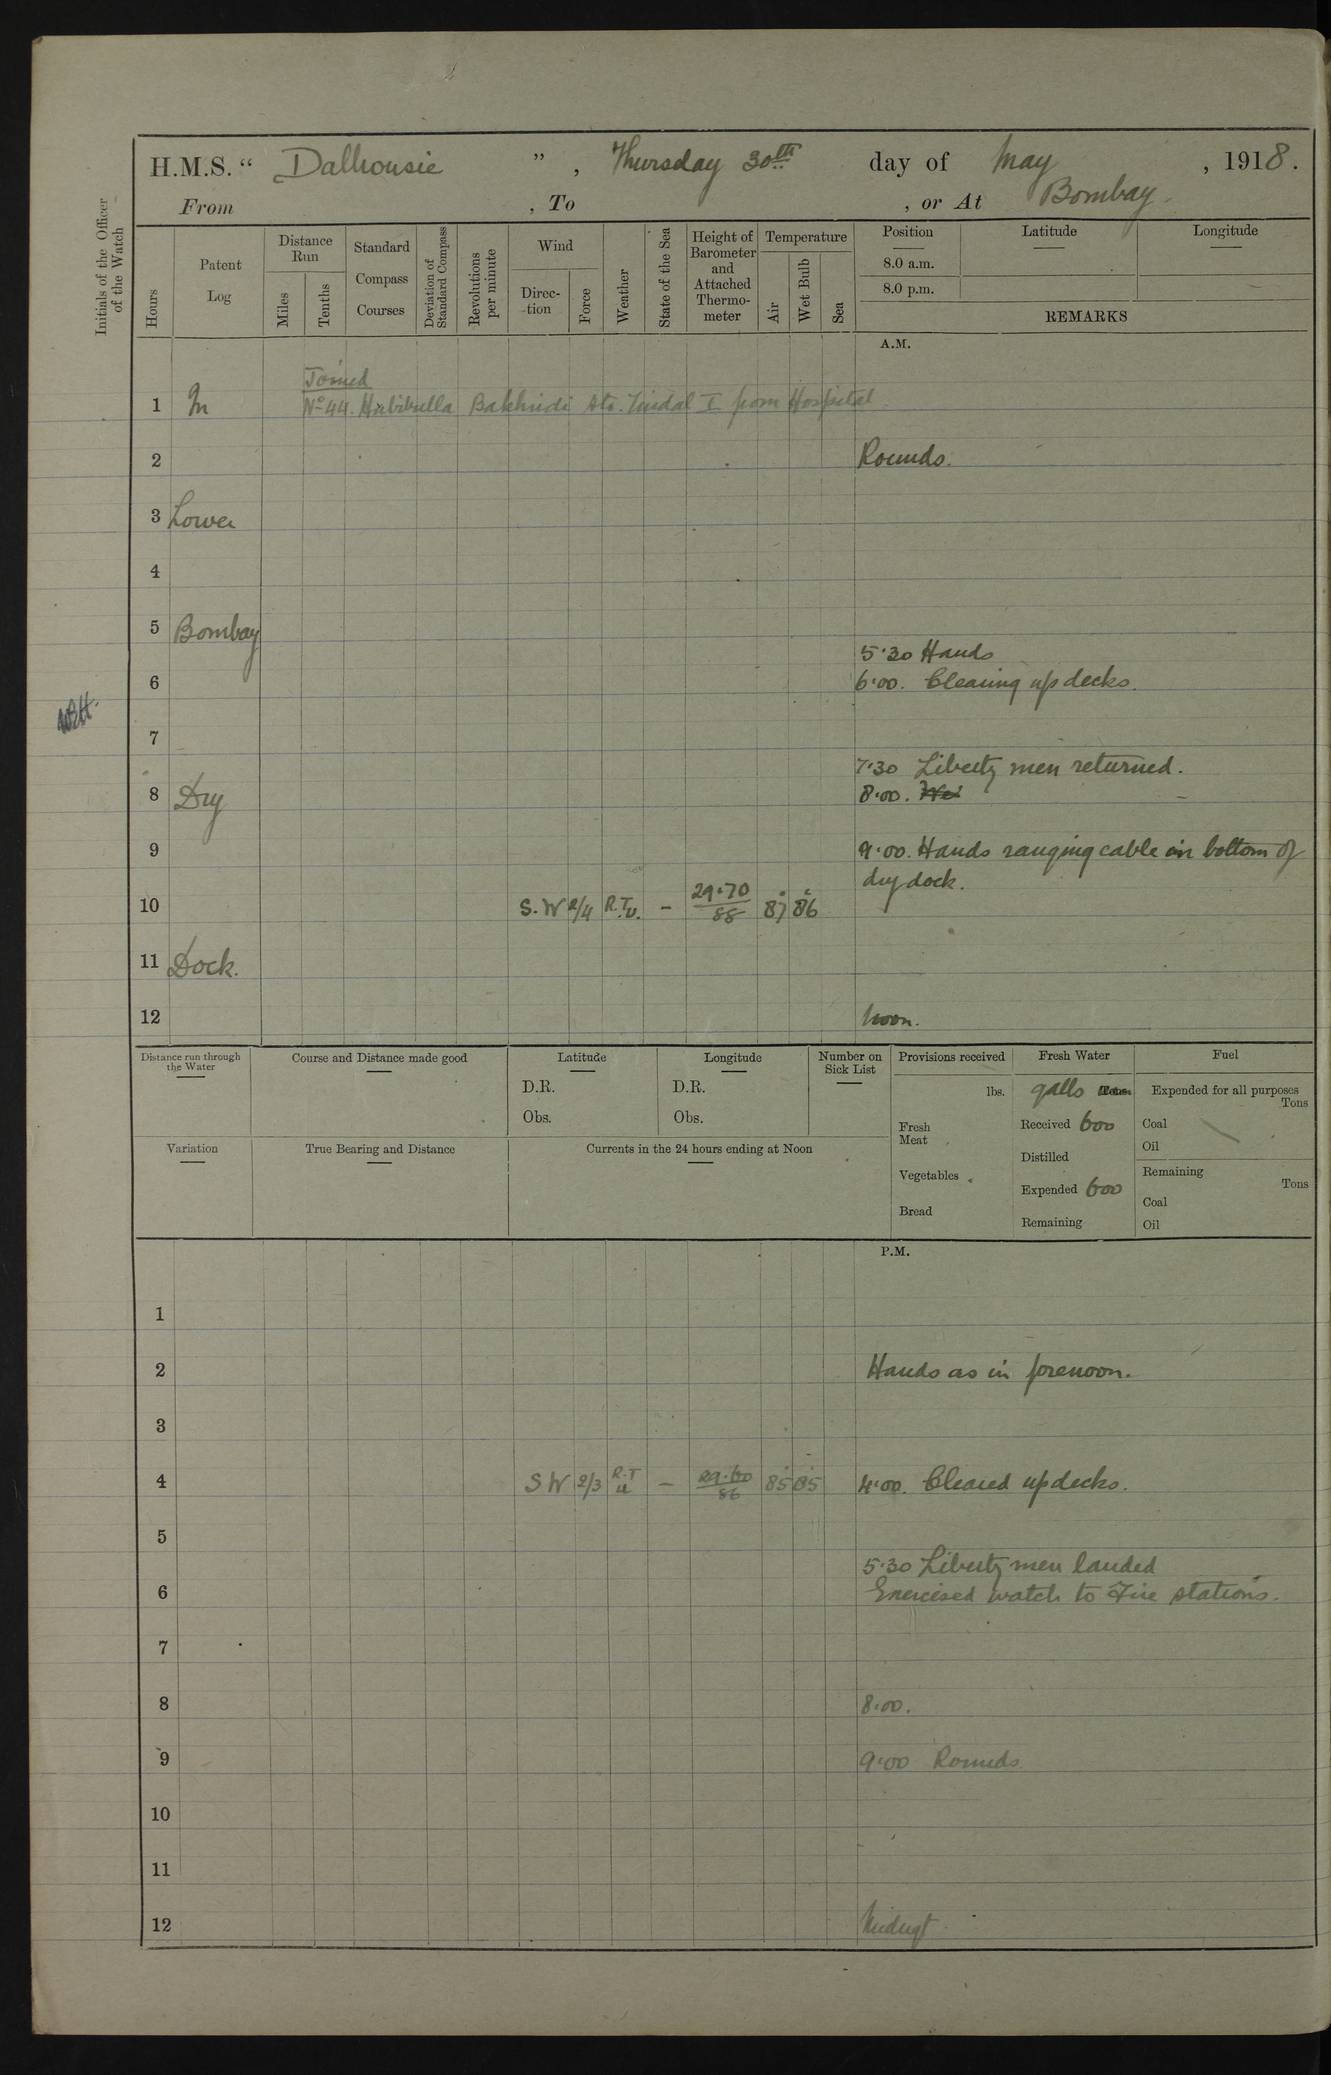 H.M.S. “ Dalhousie ” , Thursday 30th day of May , 1918.
From , To , or At Bombay.
Initials of the Officer of the Watch
Hours
Patent Log
Distance Run
Miles
Tenths
Standard Compass Courses
Deviation of Standard Compass
Revolutions per minute
Wind
Direc-tion
Force
Weather
State of the Sea
Height of Barometer and Attached Thermo-meter
Temperature
Air
Wet Bulb
Sea
Position
Latitude
Longitude
8.0 a.m.
8.0 p.m.
REMARKS
A.M.
Joined
1 In No 44. Habibulla Bakhudi Tindal I from Hospital
2 Rounds.
3 Lower
4
5 Bombay
5.30 Hands
6 6.00. Clearing up decks.
7
7.30 Liberty men returned.
8 Dry 8.00.
9 9.00. Hands ranging cable in bottom of
dry dock.
10 S.W 2/4 R.T.U. – 29.70/88 87 86
11 Dock.
12 Noon.
Distance run through the Water
Course and Distance made good
Latitude
D.R.
Obs.
Longitude
D.R.
Obs.
Number on Sick List
Provisions received
lbs.
Fresh Meat
Vegetables
Bread
Fresh Water
galls Tons
Received 600
Distilled
Expended 600
Remaining
Fuel
Expended for all purposes
Tons
Coal
Oil
Remaining
Tons
Coal
Oil
Variation
True Bearing and Distance
Currents in the 24 hours ending at Noon
P.M.
1
2 Hands as in forenoon.
3
4 SW 2/3 R.T u – 29.60/86 85 85 4.00. Cleared up decks.
5
5.30 Liberty men landed
6 Exercised watch to Fire stations.
7
8 8.00.
9 9.00 Rounds
10
11
12 Midngt